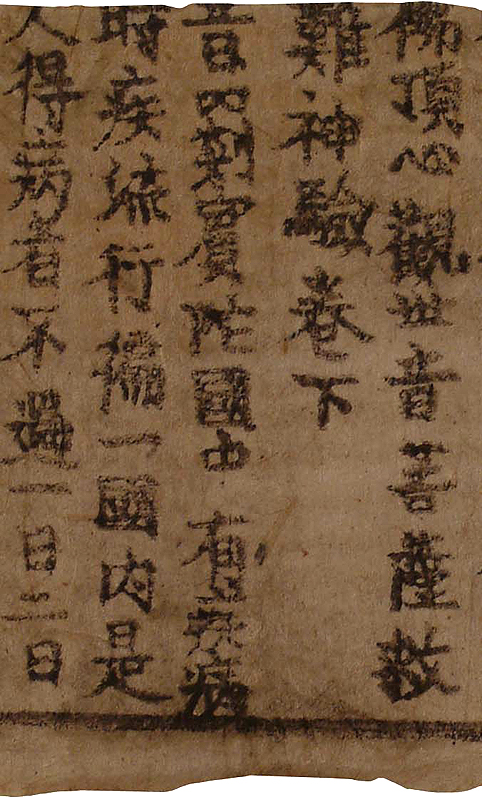 佛頂心觀世音菩薩救
難神驗卷下
昔罽賓陀國中有疾病
時疾流行徧一國內是
人得病者不過一日二日